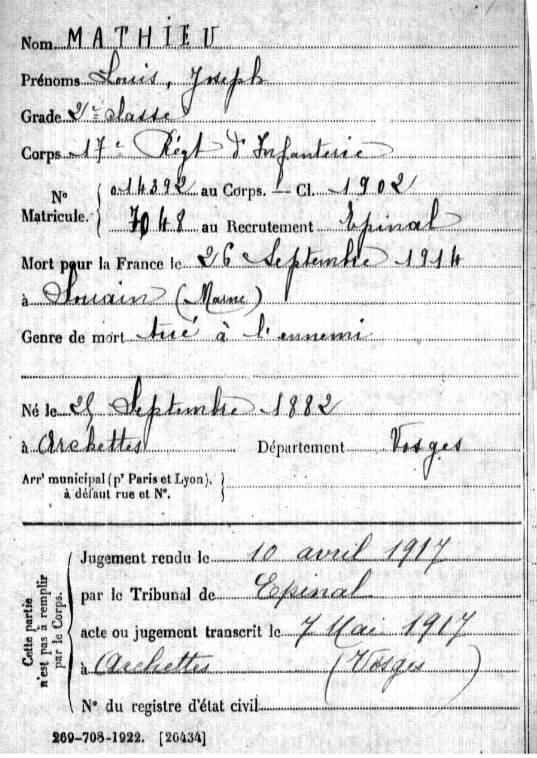 Nom MATHIEU
Prénoms Louis, Joseph
Grade 2e classe
Corps 17e Régt d'Infanterie
No Matricule. 014392 au Corps. — Cl. 1902
7048 au Recrutement Epinal
Mort pour la France le 26 Septembre 1914
à Souain (Marne)
Genre de mort tué à l'ennemi
Né le 25 Septembre 1882
à Archettes Département Vosges
Arrt municipal (pr Paris et Lyon),
à défaut rue et No.
Cette partie n'est pas à remplir par le Corps.
Jugement rendu le 10 avril 1917
par le Tribunal de Epinal
acte ou jugement transcrit le 7 Mai 1917
à Archettes (Vosges)
No du registre d'état civil
269-708-1922. [26434]